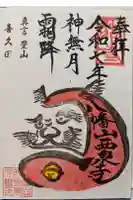 奉拝
令和七年
八幡山西來寺
神無月
霜降
真言 豐山
喜久田